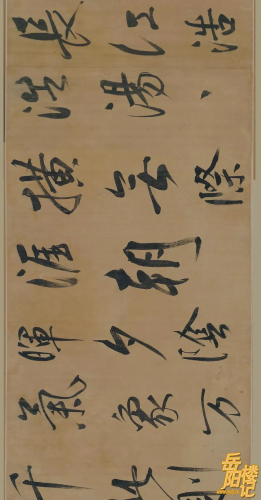 長江浩
浩湯、
橫无際
涯朝
暉夕陰
氣象万
千此則
岳阳楼记